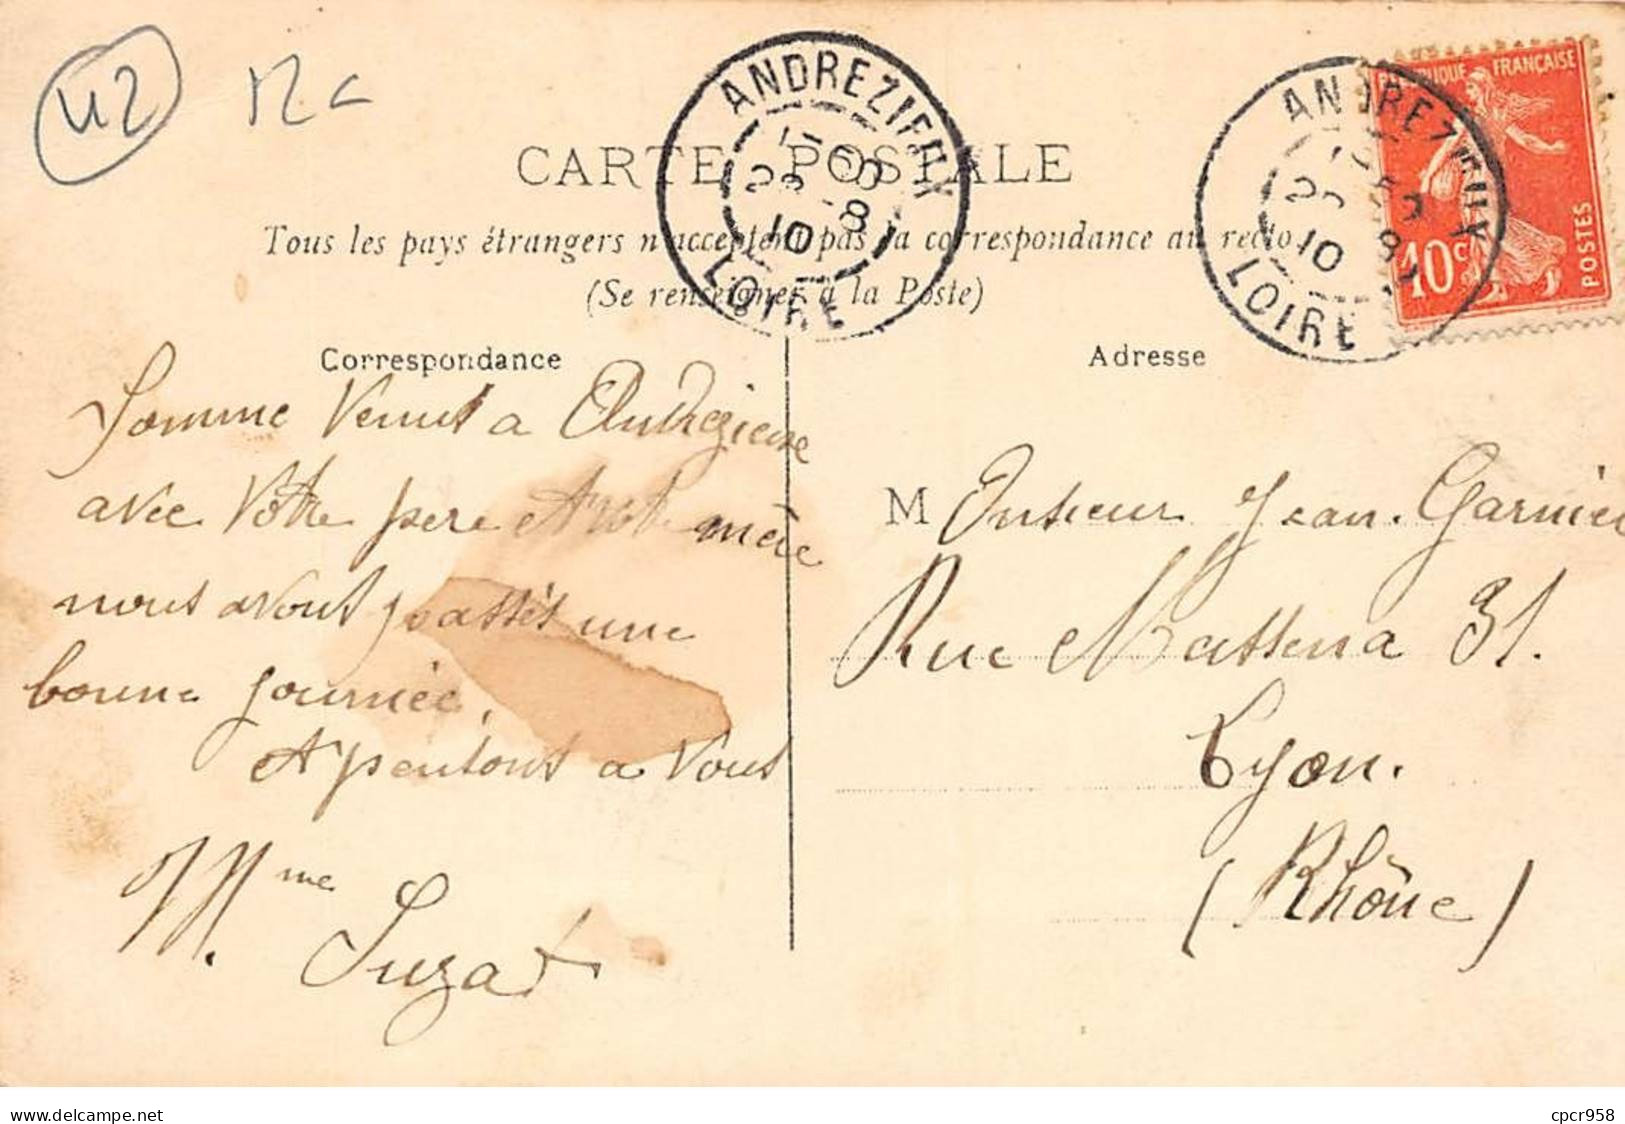 42
ANDREZIEUX
28 -8
10
LOIRE
ANDREZIEUX
10
LOIRE
REPUBLIQUE FRANÇAISE
10c
POSTES
CARTE POSTALE
Tous les pays étrangers n'acceptent pas la correspondance au recto
(Se renseigner à la Poste)
Correspondance
Adresse
Somme Venus a Andrezieux
avec Votre pere et Votre mère
nous avons passés une
bonne journée,
et pensons a Vous
Mme
Suzat
Monsieur Jean Garnier
Rue Massena 31.
Lyon.
(Rhône)
www.delcampe.net
cpcr958